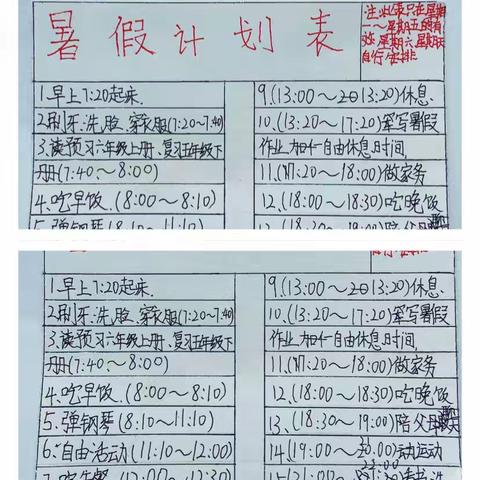 暑假计划表
注:此表只在星期
一～星期五时有
效,星期六、星期天
自行安排
1.早上7:20起床.
2.刷牙.洗脸.穿衣服(7:20～7:40)
3.读预习六年级上册、复习五年级下
册(7:40～8:00)
4.吃早饭.(8:00～8:10)
5.弹钢琴(8:10～11:10)
9.(13:00～13:20)休息.
10.(13:20～17:20)写写暑假
作业,加一自由休息时间.
11.(17:20～18:00)做家务
12.(18:00～18:30)吃晚饭
13.(18:30～19:00)陪父母
1.早上7:20起床.
2.刷牙.洗脸.穿衣服(7:20～7:40)
3.读预习六年级上册、复习五年级下
册(7:40～8:00)
4.吃早饭.(8:00～8:10)
5.弹钢琴(8:10～11:10)
6.自由活动(11:10～12:00)
7.吃午餐(12:00～12:30)
9.(13:00～13:20)休息.
10.(13:20～17:20)写暑假
作业,加一自由休息时间.
11.(17:20～18:00)做家务
12.(18:00～18:30)吃晚饭
13.(18:30～19:00)陪父母
14.(19:00～20:00)动运动
15.(21:00～